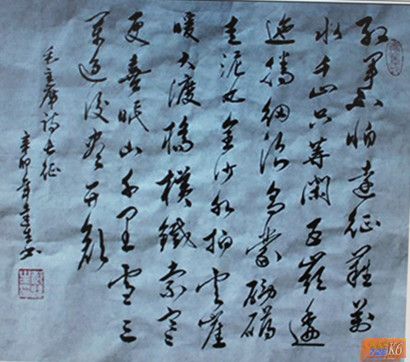 红军不怕远征難萬
水千山只等闲五嶺逶
迤腾细浪乌蒙磅礴
走泥丸金沙水拍雲崖
暖大渡橋横鐵索寒
更喜岷山千里雪三
军过後尽开颜
毛主席诗长征
辛卯年
K6